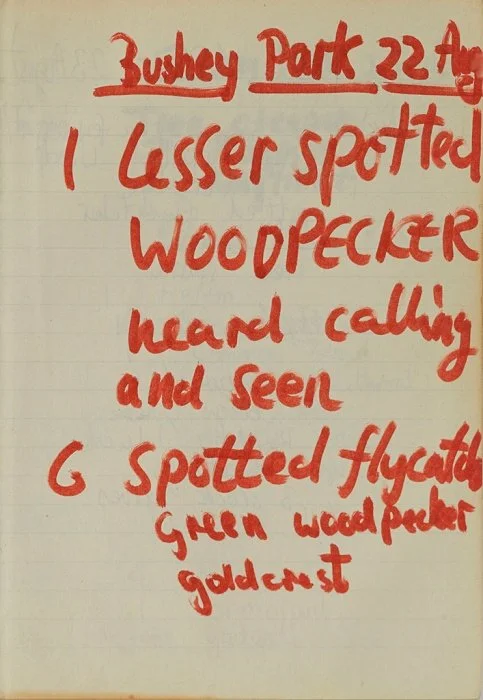 Bushey Park 22 Aug
1 Lesser spotted
WOODPECKER
heard calling
and seen
6 Spotted flycatch
green woodpecker
goldcrest